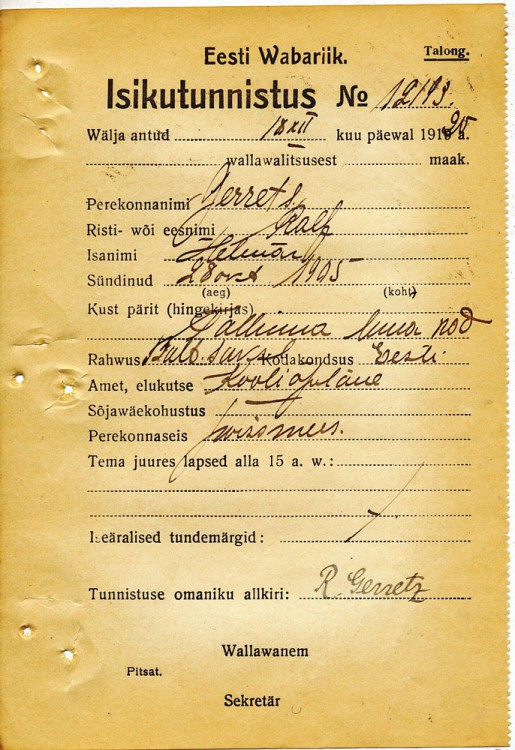 Eesti Wabariik. Talong.
Isikutunnistus № 12193.
Wälja antud 18 XII kuu päewal 1910 20 a.
wallawalitsusest maak.
Perekonnanimi Gerrets
Risti- wõi eesnimi Ralf
Isanimi Helmar
Sündinud 28 okt 1905
(aeg) (koht)
Kust pärit (hingekirjas)
Tallinna linna kod
Rahwus Balt. saksl. Kodakondsus Eesti.
Amet, elukutse Kooliõpilane
Sõjawäekohustus
Perekonnaseis poissmees.
Tema juures lapsed alla 15 a. w.:
Iseäralised tundemärgid:
Tunnistuse omaniku allkiri: R. Gerretz
Wallawanem
Pitsat.
Sekretär